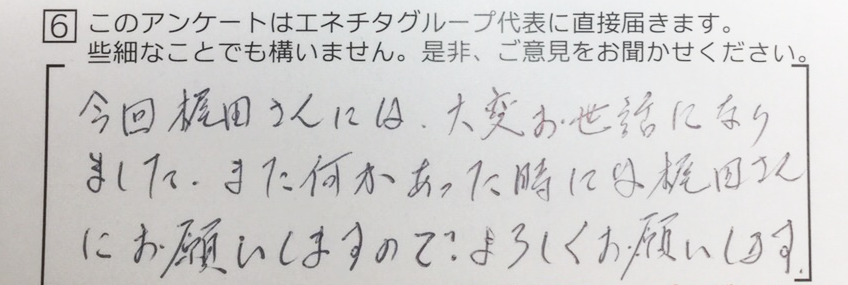 6 このアンケートはエネチタグループ代表に直接届きます。
些細なことでも構いません。是非、ご意見をお聞かせください。
今回梶田さんには、大変お世話になり
ました。また何かあった時には梶田さん
にお願いしますので、よろしくお願いします。